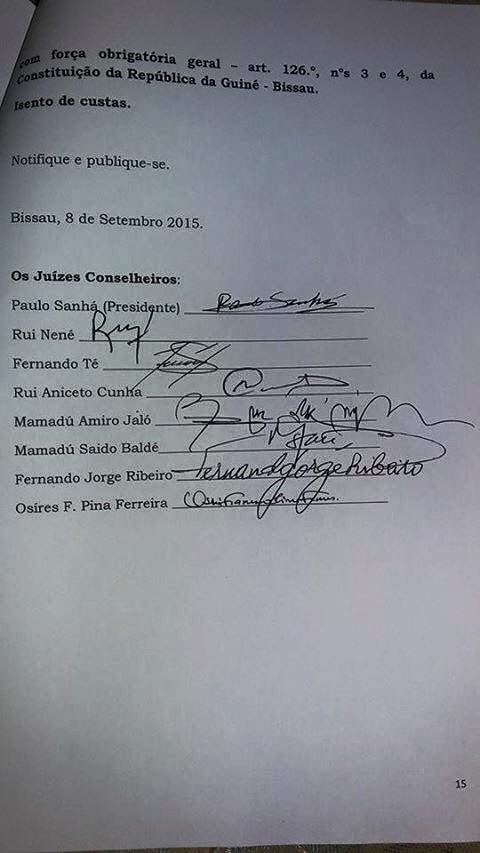 com força obrigatória geral – art. 126.º, nºs 3 e 4, da
Constituição da República da Guiné - Bissau.
Isento de custas.
Notifique e publique-se.
Bissau, 8 de Setembro 2015.
Os Juízes Conselheiros:
Paulo Sanhá (Presidente) Paulo Sanhá
Rui Nené Rui
Fernando Té
Rui Aniceto Cunha
Mamadú Amiro Jaló
Mamadú Saido Baldé
Fernando Jorge Ribeiro Fernando Jorge Ribeiro
Osíres F. Pina Ferreira
15